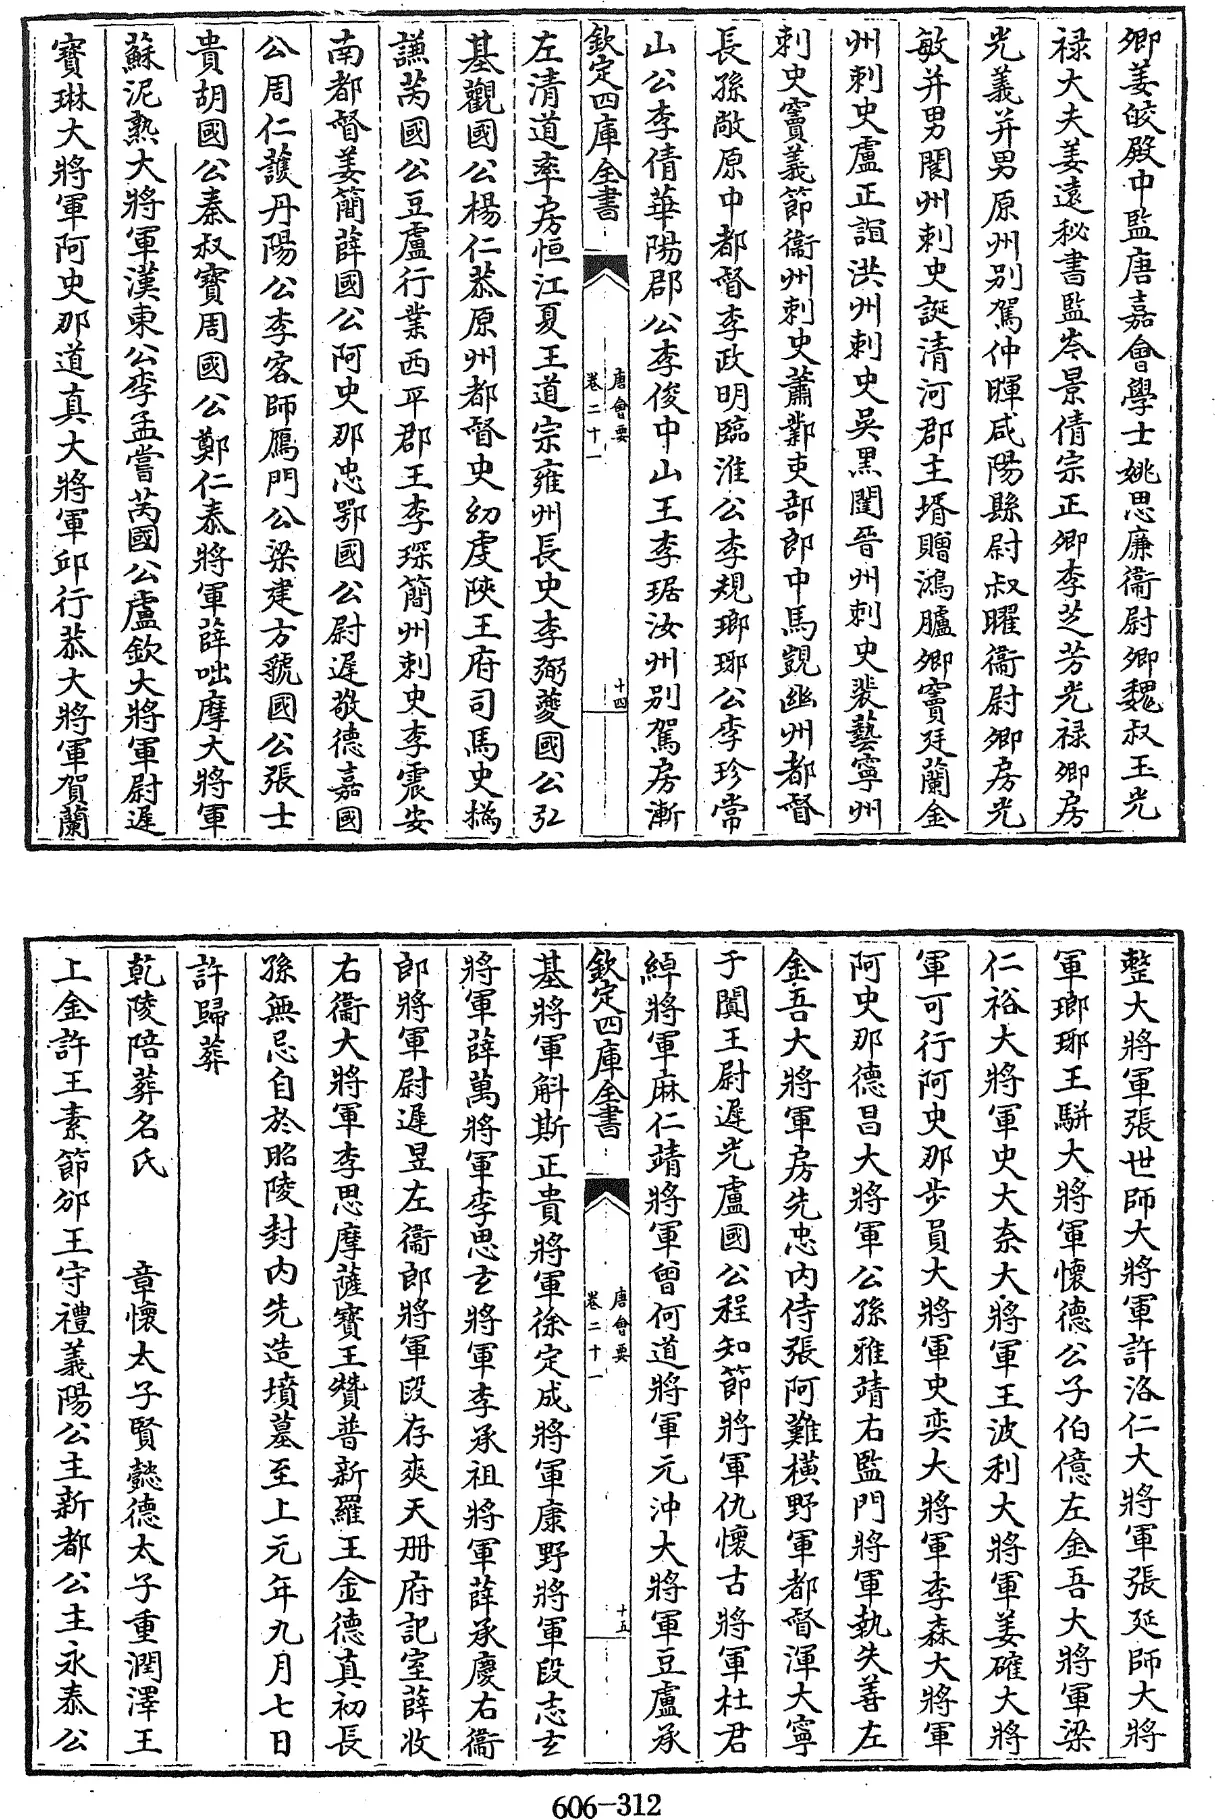 卿姜皎殿中監唐嘉會學士姚思廉衛尉卿魏叔玉光
禄大夫姜遠秘書監岑景倩宗正卿李芝芳光禄卿房
光義并男原州别駕仲暉咸陽縣尉叔曜衛尉卿房光
敏并男閬州刺史誕清河郡主壻贈鴻臚卿竇廷蘭金
州刺史盧正誼洪州刺史吴黑闥晉州刺史裴藝寧州
刺史竇義節衛州刺史蕭鄴吏部郎中馬覬幽州都督
長孫敞原中都督李政明臨淮公李規瑯琊公李珍常
山公李倩華陽郡公李俊中山王李琚汝州别駕房漸
欽定四庫全書
唐會要
卷二十一
十四
左清道率房恒江夏王道宗雍州長史李弼夔國公弘
基觀國公楊仁恭原州都督史幼虔陜王府司馬史檇
謙芮國公豆盧行業西平郡王李琛簡州刺史李震安
南都督姜簡薛國公阿史那忠鄂國公尉遲敬德嘉國
公周仁護丹陽公李客師鴈門公梁建方虢國公張士
貴胡國公秦叔寶周國公鄭仁泰將軍薛咄摩大將軍
蘇泥熟大將軍漢東公李孟嘗芮國公盧欽大將軍尉遲
寶琳大將軍阿史那道真大將軍邱行恭大將軍賀蘭
整大將軍張世師大將軍許洛仁大將軍張延師大將
軍瑯琊王駢大將軍懷德公子伯億左金吾大將軍梁
仁裕大將軍史大奈大將軍王波利大將軍姜確大將
軍可行阿史那步員大將軍史奕大將軍李森大將軍
阿史那德昌大將軍公孫雅靖右監門將軍執失善左
金吾大將軍房先忠内侍張阿難横野軍都督渾大寧
于闐王尉遲光盧國公程知節將軍仇懷古將軍杜君
綽將軍麻仁靖將軍曾何道將軍元沖大將軍豆盧承
欽定四庫全書
唐會要
卷二十一
十五
基將軍斛斯正貴將軍徐定成將軍康野將軍段志玄
將軍薛萬將軍李思玄將軍李承祖將軍薛承慶右衛
郎將軍尉遲昱左衛郎將軍段存爽天册府記室薛收
右衛大將軍李思摩薩寶王贊普新羅王金德真初長
孫無忌自於昭陵封内先造墳墓至上元年九月七日
許歸葬
乾陵陪葬名氏　章懷太子賢懿德太子重潤澤王
上金許王素節邠王守禮義陽公主新都公主永泰公
606-312